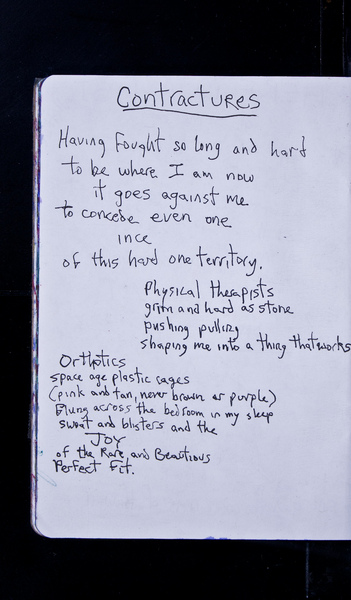 Contractures
Having Fought so long and hard
to be where I am now
it goes against me
to concede even one
ince
of this hard one territory.
Physical therapists
grim and hard as stone
pushing pulling
shaping me into a thing that works
Orthotics
space age plastic cages
(pink and tan, never brown or purple)
Flung across the bedroom in my sleep
sweat and blisters and the
Joy
of the Rare and Beautious
Perfect Fit.